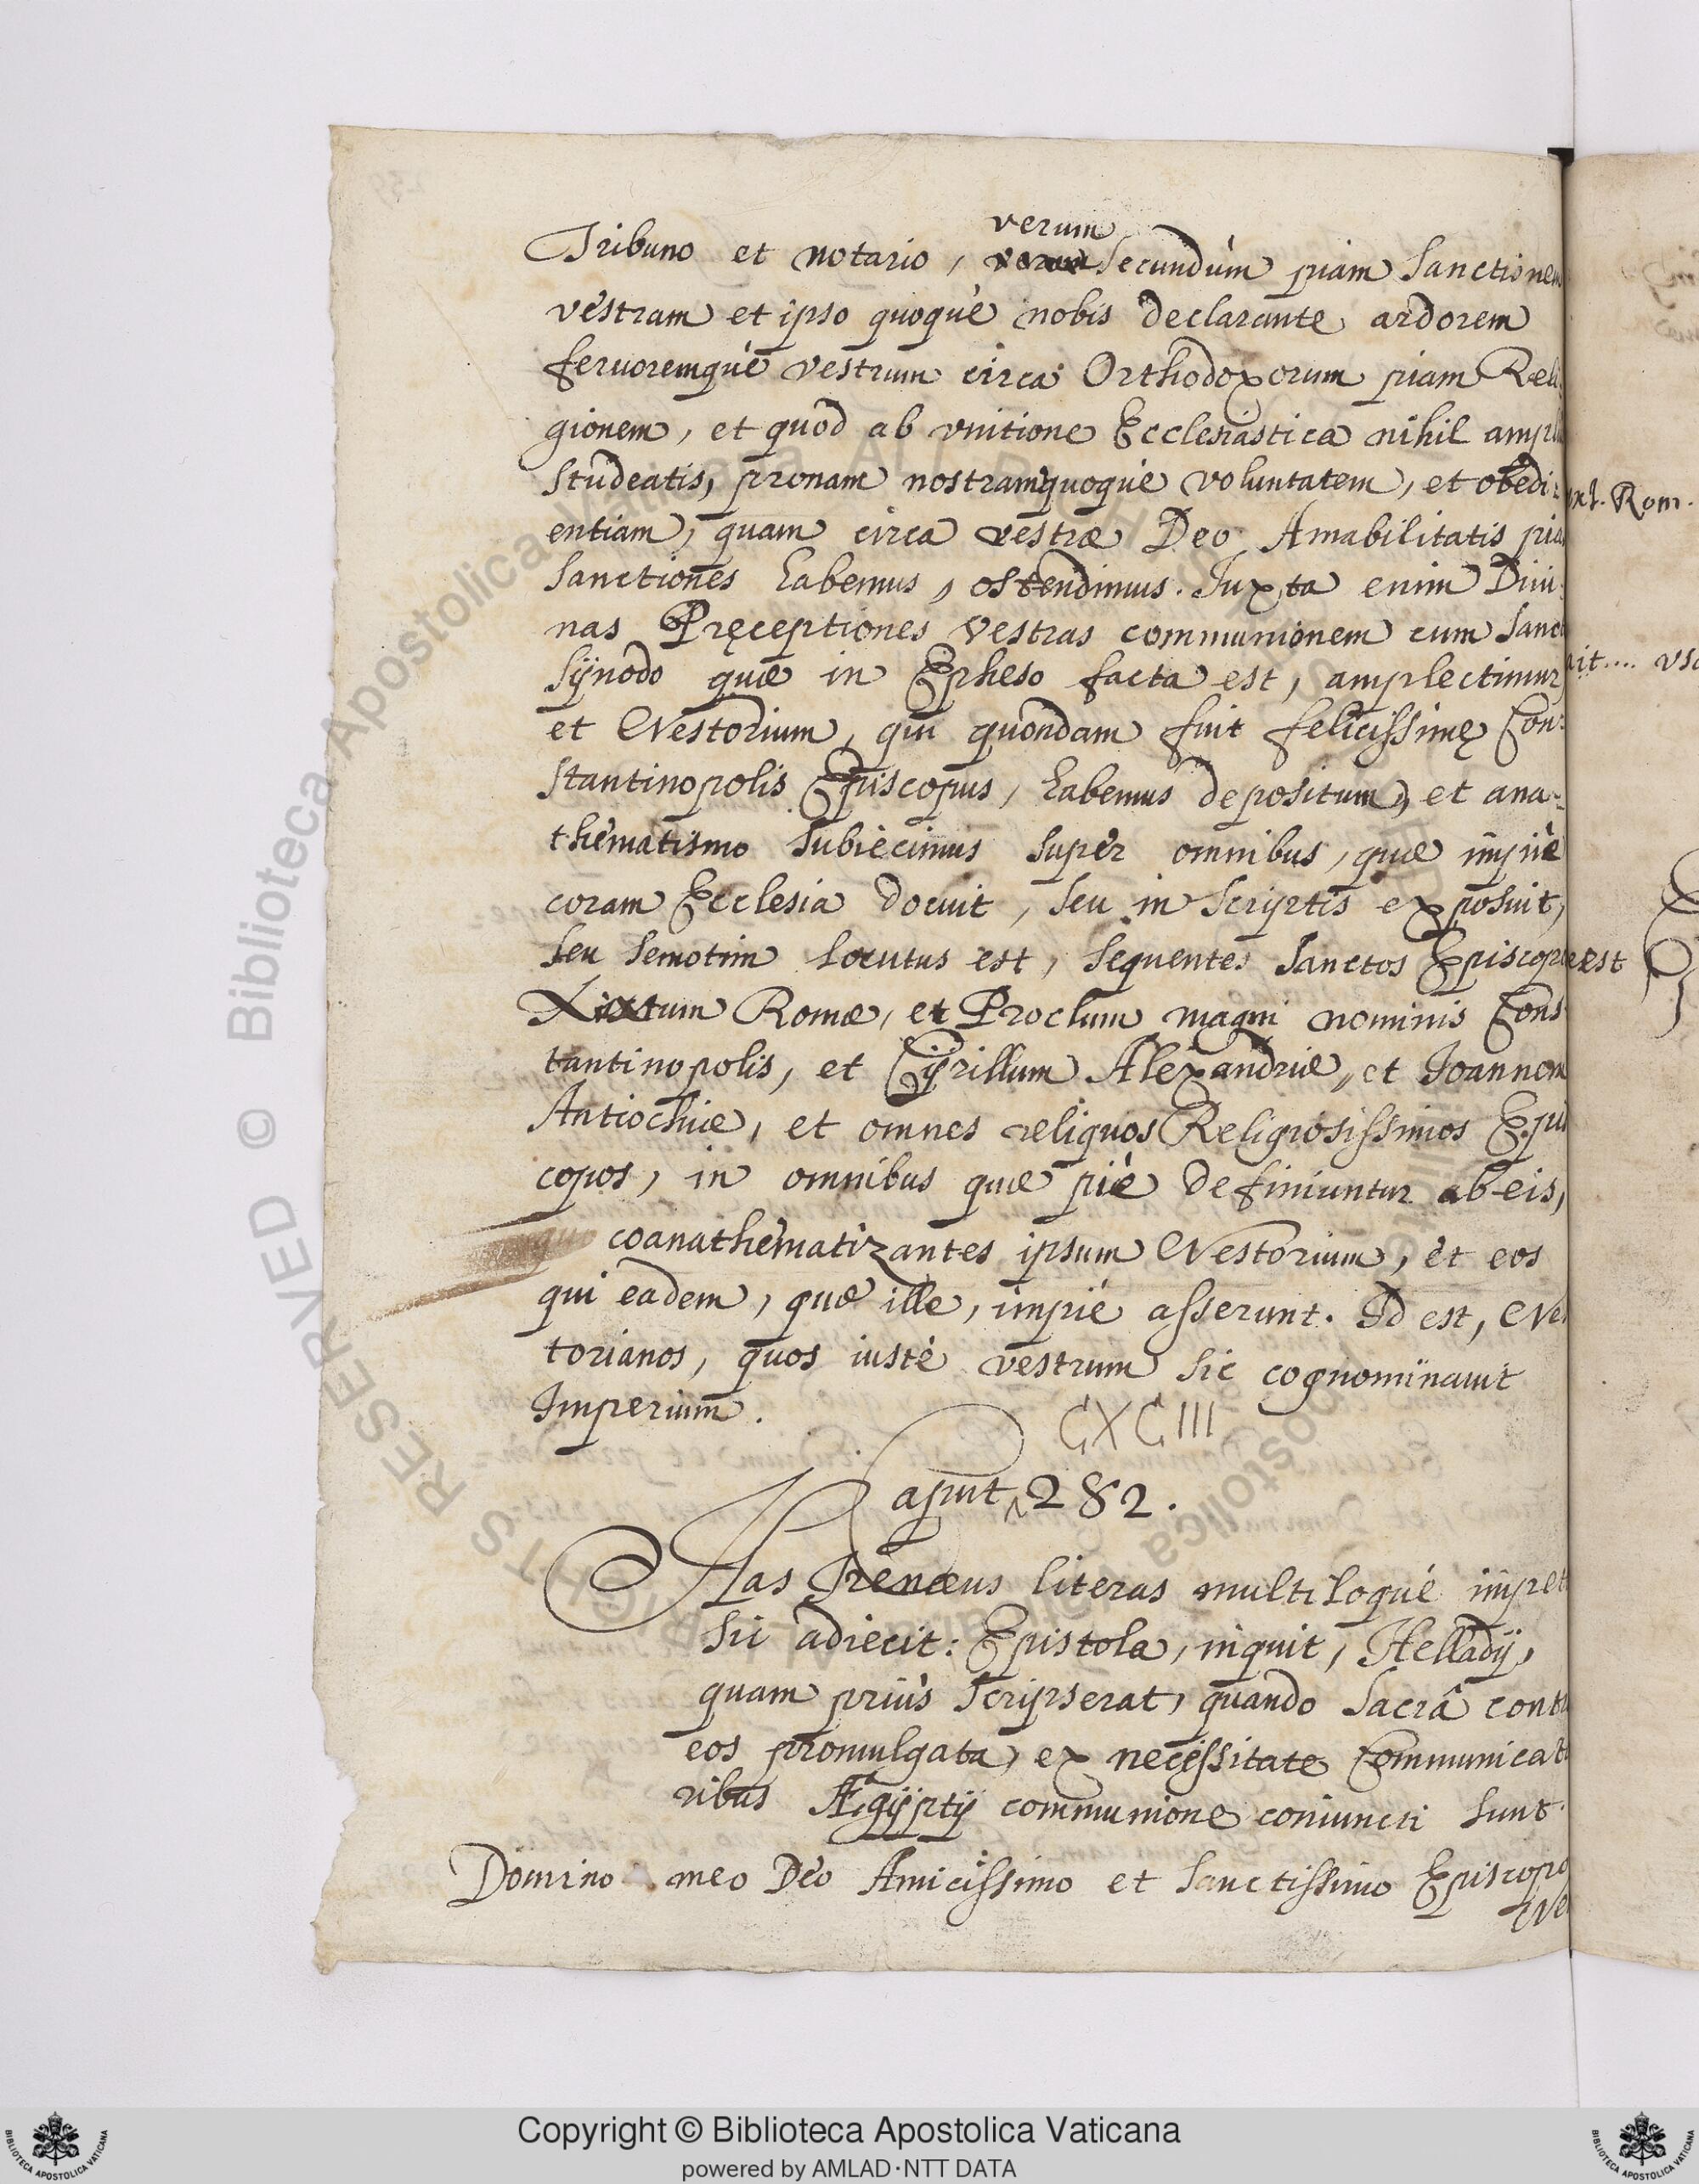 verum
Tribuno et notario, secundùm piam Sanctionem
vestram et ipso quoquè nobis declarante ardorem
feruoremquè vestrum circa Orthodoxorum piam Reli
gionem, et quod ab vnitione Ecclesiastica nihil ampli
studeatis, pronam nostramquoque voluntatem, et obedi:
entiam, quam circa vestræ Deo Amabilitatis pia
Sanctiones habemus, ostendimus. Iuxta enim Diui:
nas Pręceptiones Vestras communionem cum Sanc
Sÿnodo quæ in Epheso facta est, amplectimur
et Nestorium, qui quondam fuit felicissimę Con:
stantinopolis Episcopus, habemus depositum, et ana:
thematismo subiecimus super omnibus, quæ impiè
coram Ecclesia docuit, seu in scriptis exposuit,
seu semotim locutus est, sequentes Sanctos Episcop
Xixtum Romæ, et Proclum magni nominis Cons
tantinopolis, et Cÿrillum Alexandriæ, et Ioannem
Antiochiæ, et omnes reliquos Religiosissimos Epis
copos, in omnibus quæ piè definiuntur ab eis,
coanathematizantes ipsum Nestorium, et eos
qui eadem, quæ ille, impiè asserunt. Id est, Nes
torianos, quos iustè vestrum sic cognominauit
Imperium.
CXCIII
Caput 282.
Has Irenæus literas multiloquè impet
sic adiecit: Epistola, inquit, Helladÿ,
quam priùs scripserat, quando Sacrâ cont
eos promulgata, ex necessitate communicat
ribus Ægÿptÿ communione coniuncti sunt.
Domino meo Deo Amicissimo et Sanctissimo Episcopo
Ne
ext. Rom.
ait.... vsq
est
© Biblioteca Apostolica Vaticana ALL RIGHTS RESERVED
Copyright © Biblioteca Apostolica Vaticana
powered by AMLAD·NTT DATA
BIBLIOTECA APOSTOLICA VATICANA
BIBLIOTECA APOSTOLICA VATICANA